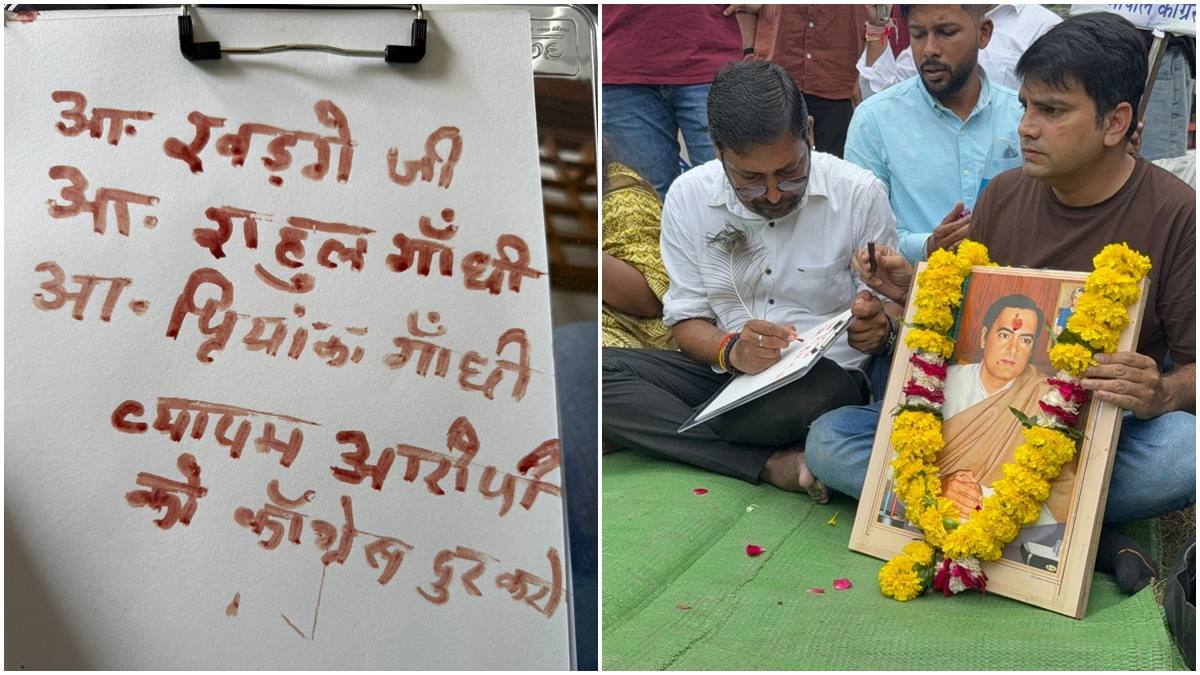 आ. खड़गे जी
आ. राहुल गाँधी
आ. प्रियांका गाँधी
व्यापम आरोपी
को काँग्रेस दूर करो
कांग्रेस